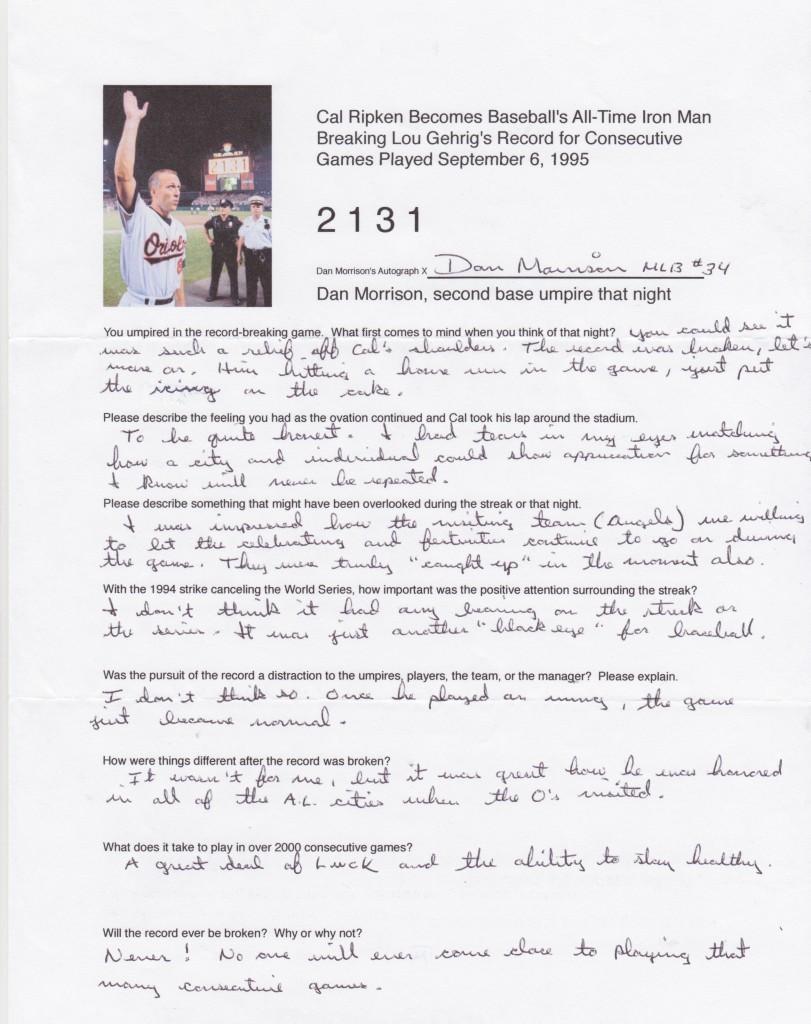 Cal Ripken Becomes Baseball's All-Time Iron Man
Breaking Lou Gehrig's Record for Consecutive
Games Played September 6, 1995
2131
2131
Orioles
Dan Morrison's Autograph X Dan Morrison MLB #34
Dan Morrison, second base umpire that night
You umpired in the record-breaking game. What first comes to mind when you think of that night? You could see it
was such a relief off Cal's shoulders. The record was broken, let's
move on. Him hitting a home run in the game, just put
the icing on the cake.
Please describe the feeling you had as the ovation continued and Cal took his lap around the stadium.
To be quite honest. I had tears in my eyes watching
how a city and individual could show appreciation for something
I know will never be repeated.
Please describe something that might have been overlooked during the streak or that night.
I was impressed how the visiting team (Angels) were willing
to let the celebrating and festivities continue to go on during
the game. They were truly "caught up" in the moment also.
With the 1994 strike canceling the World Series, how important was the positive attention surrounding the streak?
I don't think it had any bearing on the streak or
the series. It was just another "black eye" for baseball.
Was the pursuit of the record a distraction to the umpires, players, the team, or the manager? Please explain.
I don't think so. Once he played an inning, the game
just became normal.
How were things different after the record was broken?
It wasn't for me, but it was great how he was honored
in all of the A.L. cities when the O's visited.
What does it take to play in over 2000 consecutive games?
A great deal of Luck and the ability to stay healthy.
Will the record ever be broken? Why or why not?
Never! No one will ever come close to playing that
many consecutive games.